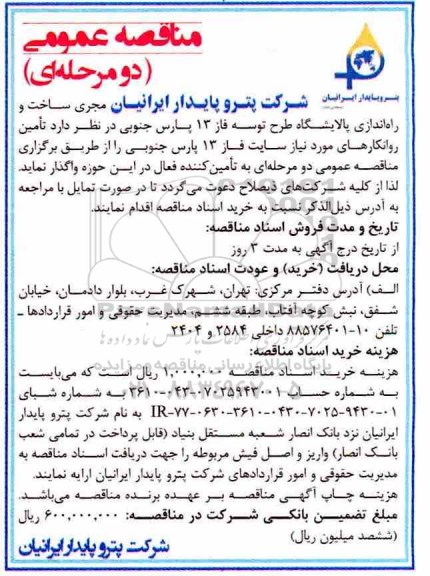 مناقصه عمومی
(دو مرحله‌ای)
پتروپایدار ایرانیان
شرکت پترو پایدار ایرانیان مجری ساخت و
راه‌اندازی پالایشگاه طرح توسعه فاز ۱۳ پارس جنوبی در نظر دارد تأمین
روانکارهای مورد نیاز سایت فاز ۱۳ پارس جنوبی را از طریق برگزاری
مناقصه عمومی دو مرحله‌ای به تأمین‌کننده فعال در این حوزه واگذار نماید.
لذا از کلیه شرکت‌های ذیصلاح دعوت می‌گردد تا در صورت تمایل با مراجعه
به آدرس ذیل‌الذکر نسبت به خرید اسناد مناقصه اقدام نمایند.
تاریخ و مدت فروش اسناد مناقصه:
از تاریخ درج آگهی به مدت ۳ روز
محل دریافت (خرید) و عودت اسناد مناقصه:
الف) آدرس دفتر مرکزی: تهران، شهرک غرب، بلوار دادمان، خیابان
شفق، نبش کوچه آفتاب، طبقه ششم، مدیریت حقوقی و امور قراردادها ـ
تلفن ۱۰-۸۸۵۷۶۴۰۱ داخلی ۲۵۸۴ و ۲۴۰۴
هزینه خرید اسناد مناقصه:
هزینه خرید اسناد مناقصه ۱,۰۰۰,۰۰۰ ریال است که می‌بایست
به شماره حساب ۱-۷۰۲۵۹۴۳-۰۴۳-۳۶۱۰ به شماره شبای
IR-۷۷-۰۶۳۰-۳۶۱۰-۰۴۳۰-۷۰۲۵-۹۴۳۰-۰۱ به نام شرکت پترو پایدار
ایرانیان نزد بانک انصار شعبه مستقل بنیاد (قابل پرداخت در تمامی شعب
بانک انصار) واریز و اصل فیش مربوطه را جهت دریافت اسناد مناقصه به
مدیریت حقوقی و امور قراردادهای شرکت پترو پایدار ایرانیان ارایه نمایند.
هزینه چاپ آگهی مناقصه بر عهده برنده مناقصه می‌باشد.
مبلغ تضمین بانکی شرکت در مناقصه: ۶۰۰,۰۰۰,۰۰۰ ریال
(ششصد میلیون ریال)
شرکت پترو پایدار ایرانیان